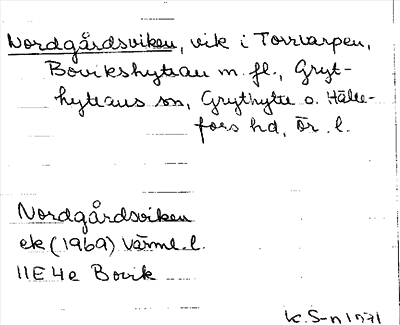 Nordgårdsviken, vik i Torrvarpen,
Bovikshyttan m. fl., Gryt-
hyttans sn, Grythytte o. Hälle-
fors hd, Ör. l.
Nordgårdsviken
ek (1969) Värml. l.
11E 4e Bovik
K. S-n 1971